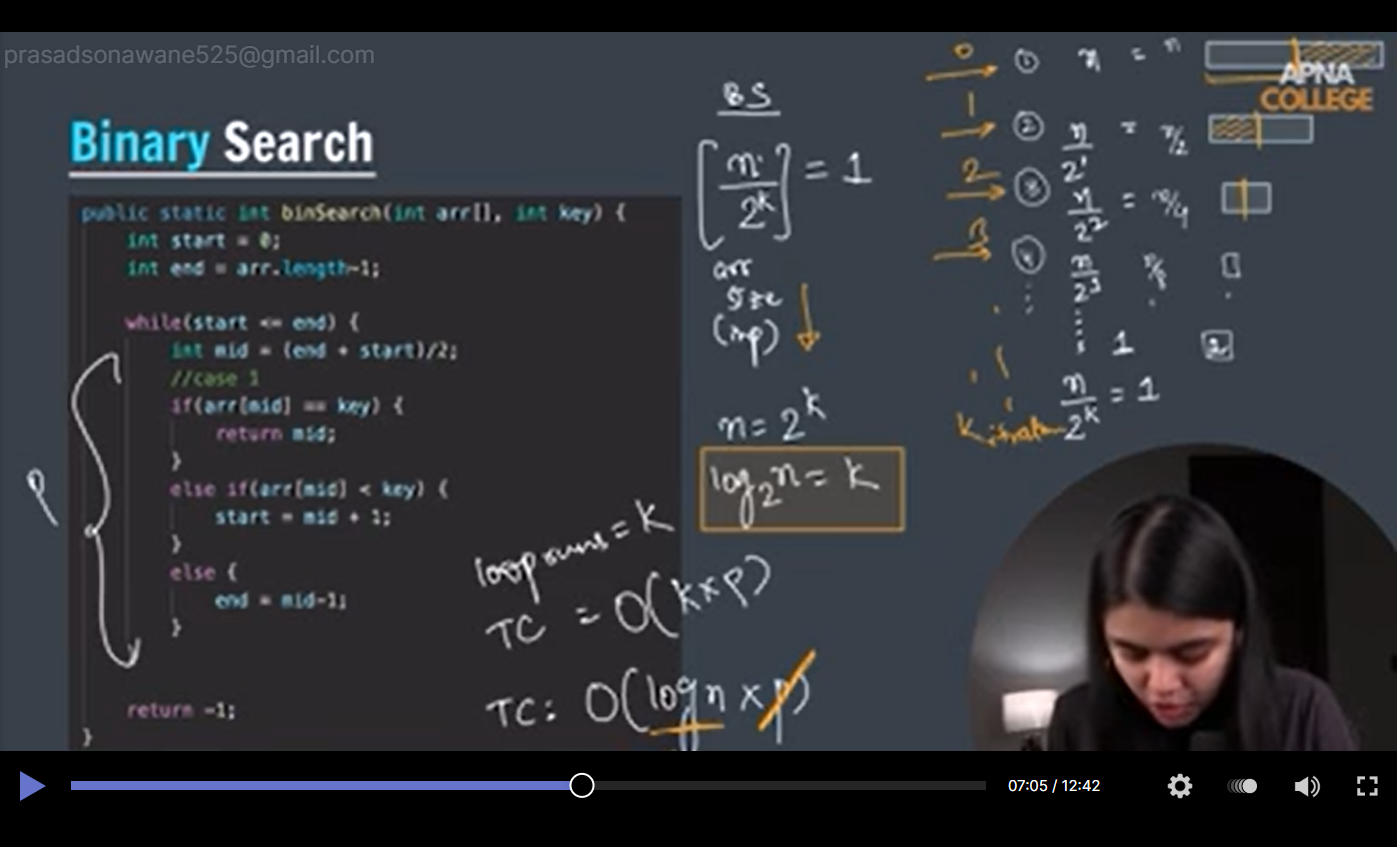 prasadsonawane525@gmail.com
APNA
COLLEGE
Binary Search
public static int binSearch(int arr[], int key) {
int start = 0;
int end = arr.length-1;
while(start <= end) {
int mid = (end + start)/2;
//case 1
if(arr[mid] == key) {
return mid;
}
else if(arr[mid] < key) {
start = mid + 1;
}
else {
end = mid-1;
}
return -1;
}
P
loop runs = K
TC = O(k×p)
TC: O(log n × p)
BS
[n/2^k] = 1
arr
size
(inp)
n = 2^k
log₂n = k
0 ① n = n
1 ② n/2^1 = n/2
2 ③ n/2^2 = n/4
3 ④ n/2^3 n/8
1
2
K n/2^k = 1
07:05 / 12:42